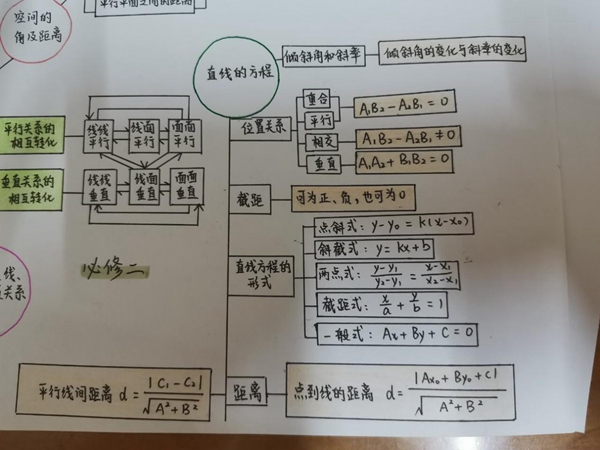 平行平面之间的距离
空间的
角及距离
直线的方程
倾斜角和斜率
倾斜角的变化与斜率的变化
平行关系的
相互转化
线线
平行
线面
平行
面面
平行
垂直关系的
相互转化
线线
垂直
线面
垂直
面面
垂直
位置关系
重合
平行
A₁B₂-A₂B₁=0
相交
A₁B₂-A₂B₁≠0
垂直
A₁A₂+B₁B₂=0
截距
可为正、负,也可为0
必修二
直线方程的
形式
点斜式: y-y₀=k(x-x₀)
斜截式: y=kx+b
两点式: (y-y₁)/(y₂-y₁)=(x-x₁)/(x₂-x₁)
截距式: x/a+y/b=1
一般式: Ax+By+C=0
线、
关系
平行线间距离 d=|C₁-C₂|/√(A²+B²)
距离
点到线的距离 d=|Ax₀+By₀+C|/√(A²+B²)